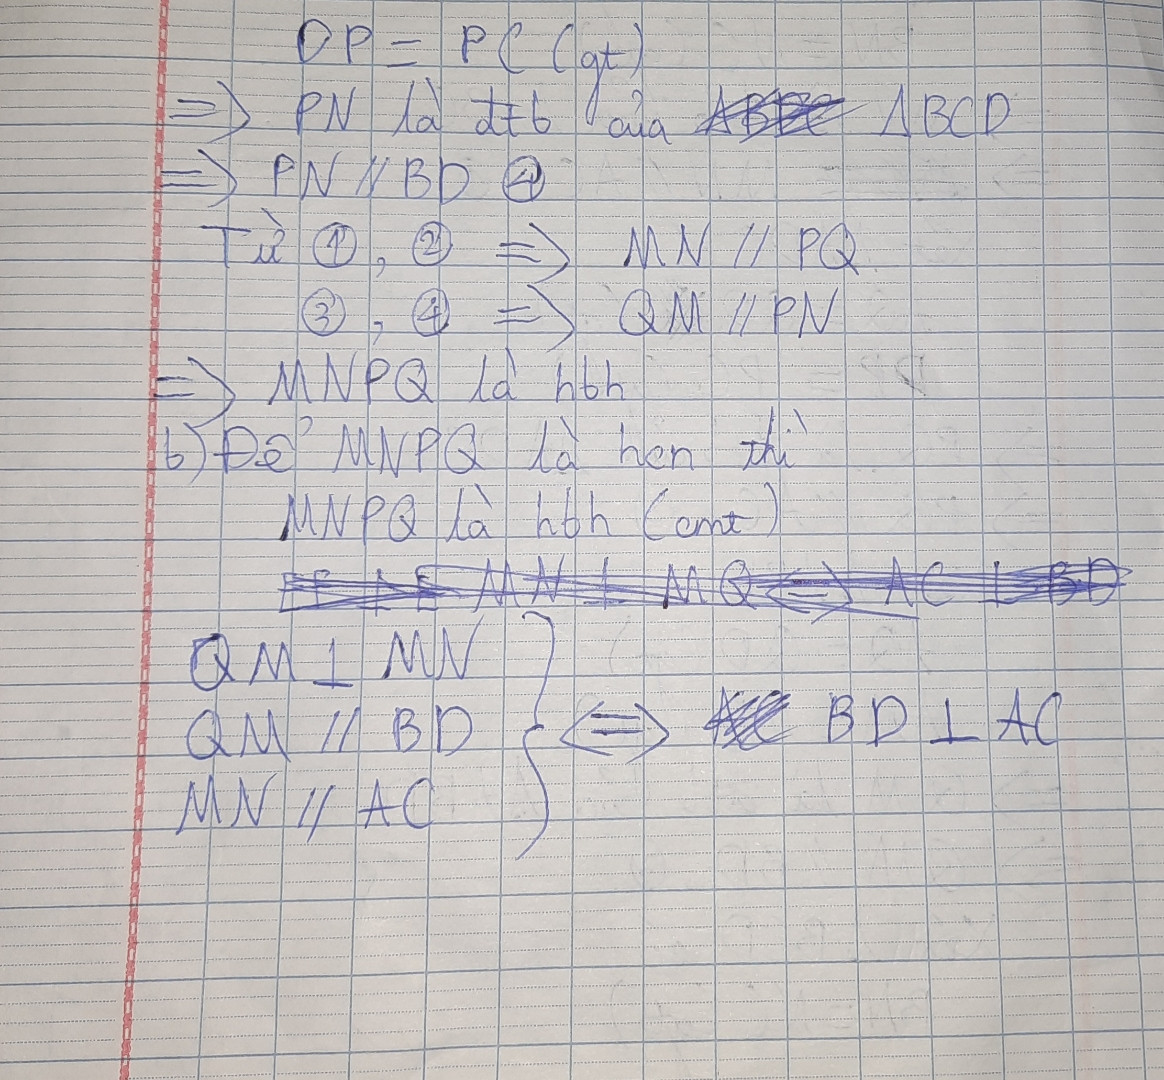 DP = PC (gt)
=> PN là đtb của ΔBCD
=> PN // BD ④
Từ ①, ② => MN // PQ
③, ④ => QM // PN
=> MNPQ là hbh
b) Để MNPQ là hcn thì
MNPQ là hbh (cmt)
MN ⊥ MQ <=> AC ⊥ BD
QM ⊥ MN
QM // BD
<=> BD ⊥ AC
MN // AC